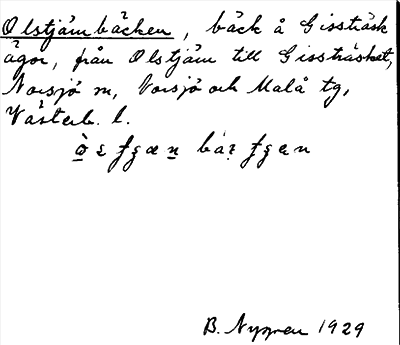 Olstjärnbäcken, bäck å Gissträsk
ägor, från Olstjärn till Gissträsket,
Norsjö sn, Norsjö och Malå tg,
Västerb. l.
B. Nygren 1929